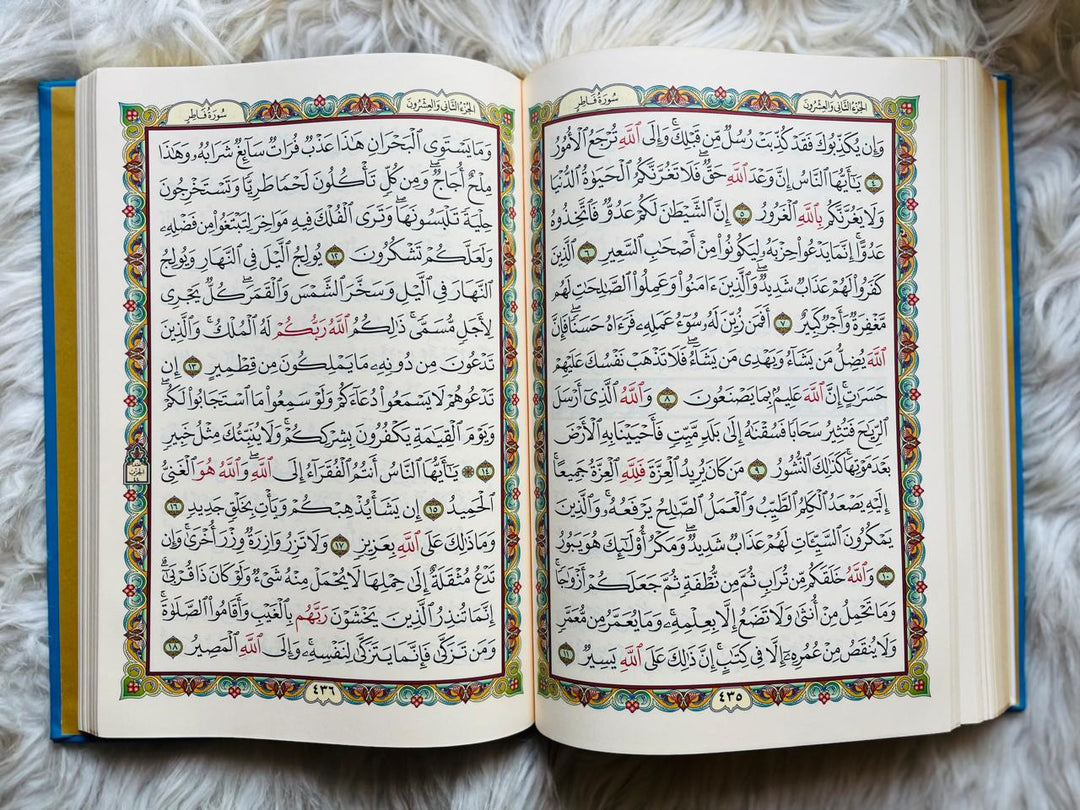 سُورَةُ فَاطِرٍ
الجُزْءُ الثَّانِي وَالعِشْرُونَ
وَإِن يُكَذِّبُوكَ فَقَدْ كُذِّبَتْ رُسُلٌ مِّن قَبْلِكَۚ وَإِلَى ٱللَّهِ تُرْجَعُ ٱلْأُمُورُ
٤ يَٰٓأَيُّهَا ٱلنَّاسُ إِنَّ وَعْدَ ٱللَّهِ حَقّٞۖ فَلَا تَغُرَّنَّكُمُ ٱلْحَيَوٰةُ ٱلدُّنْيَا
وَلَا يَغُرَّنَّكُم بِٱللَّهِ ٱلْغَرُورُ ٥ إِنَّ ٱلشَّيْطَٰنَ لَكُمْ عَدُوّٞ فَٱتَّخِذُوهُ
عَدُوًّاۚ إِنَّمَا يَدْعُوا۟ حِزْبَهُۥ لِيَكُونُوا۟ مِنْ أَصْحَٰبِ ٱلسَّعِيرِ ٦ ٱلَّذِينَ
كَفَرُوا۟ لَهُمْ عَذَابٌ شَدِيدٌۖ وَٱلَّذِينَ ءَامَنُوا۟ وَعَمِلُوا۟ ٱلصَّٰلِحَٰتِ لَهُم
مَّغْفِرَةٌ وَأَجْرٌ كَبِيرٌ ٧ أَفَمَن زُيِّنَ لَهُۥ سُوٓءُ عَمَلِهِۦ فَرَءَاهُ حَسَنًاۖ فَإِنَّ
ٱللَّهَ يُضِلُّ مَن يَشَآءُ وَيَهْدِى مَن يَشَآءُۖ فَلَا تَذْهَبْ نَفْسُكَ عَلَيْهِمْ
حَسَرَٰتٍۚ إِنَّ ٱللَّهَ عَلِيمٌۢ بِمَا يَصْنَعُونَ ٨ وَٱللَّهُ ٱلَّذِىٓ أَرْسَلَ
ٱلرِّيَٰحَ فَتُثِيرُ سَحَابًا فَسُقْنَٰهُ إِلَىٰ بَلَدٍ مَّيِّتٍ فَأَحْيَيْنَا بِهِ ٱلْأَرْضَ
بَعْدَ مَوْتِهَاۚ كَذَٰلِكَ ٱلنُّشُورُ ٩ مَن كَانَ يُرِيدُ ٱلْعِزَّةَ فَلِلَّهِ ٱلْعِزَّةُ جَمِيعًاۚ
إِلَيْهِ يَصْعَدُ ٱلْكَلِمُ ٱلطَّيِّبُ وَٱلْعَمَلُ ٱلصَّٰلِحُ يَرْفَعُهُۥۚ وَٱلَّذِينَ
يَمْكُرُونَ ٱلسَّيِّـَٔاتِ لَهُمْ عَذَابٌ شَدِيدٌۖ وَمَكْرُ أُو۟لَٰٓئِكَ هُوَ يَبُورُ
١٠ وَٱللَّهُ خَلَقَكُم مِّن تُرَابٍ ثُمَّ مِن نُّطْفَةٍ ثُمَّ جَعَلَكُمْ أَزْوَٰجًاۚ
وَمَا تَحْمِلُ مِنْ أُنثَىٰ وَلَا تَضَعُ إِلَّا بِعِلْمِهِۦۚ وَمَا يُعَمَّرُ مِن مُّعَمَّرٍ
وَلَا يُنقَصُ مِنْ عُمُرِهِۦٓ إِلَّا فِى كِتَٰبٍۚ إِنَّ ذَٰلِكَ عَلَى ٱللَّهِ يَسِيرٌ ١١
٤٣٥
سُورَةُ فَاطِرٍ
الجُزْءُ الثَّانِي وَالعِشْرُونَ
وَمَا يَسْتَوِى ٱلْبَحْرَانِ هَٰذَا عَذْبٌ فُرَاتٌ سَآئِغٌ شَرَابُهُۥ وَهَٰذَا
مِلْحٌ أُجَاجٌۖ وَمِن كُلٍّ تَأْكُلُونَ لَحْمًا طَرِيًّا وَتَسْتَخْرِجُونَ
حِلْيَةً تَلْبَسُونَهَاۖ وَتَرَى ٱلْفُلْكَ فِيهِ مَوَاخِرَ لِتَبْتَغُوا۟ مِن فَضْلِهِۦ
وَلَعَلَّكُمْ تَشْكُرُونَ ١٢ يُولِجُ ٱلَّيْلَ فِى ٱلنَّهَارِ وَيُولِجُ
ٱلنَّهَارَ فِى ٱلَّيْلِ وَسَخَّرَ ٱلشَّمْسَ وَٱلْقَمَرَۖ كُلٌّ يَجْرِى
لِأَجَلٍ مُّسَمًّىۚ ذَٰلِكُمُ ٱللَّهُ رَبُّكُمْ لَهُ ٱلْمُلْكُۚ وَٱلَّذِينَ
تَدْعُونَ مِن دُونِهِۦ مَا يَمْلِكُونَ مِن قِطْمِيرٍ ١٣ إِن
تَدْعُوهُمْ لَا يَسْمَعُوا۟ دُعَآءَكُمْ وَلَوْ سَمِعُوا۟ مَا ٱسْتَجَابُوا۟ لَكُمْۖ
وَيَوْمَ ٱلْقِيَٰمَةِ يَكْفُرُونَ بِشِرْكِكُمْۚ وَلَا يُنَبِّئُكَ مِثْلُ خَبِيرٍ
١٤ ۞ يَٰٓأَيُّهَا ٱلنَّاسُ أَنتُمُ ٱلْفُقَرَآءُ إِلَى ٱللَّهِۖ وَٱللَّهُ هُوَ ٱلْغَنِىُّ
ٱلْحَمِيدُ ١٥ إِن يَشَأْ يُذْهِبْكُمْ وَيَأْتِ بِخَلْقٍ جَدِيدٍ ١٦
وَمَا ذَٰلِكَ عَلَى ٱللَّهِ بِعَزِيزٍ ١٧ وَلَا تَزِرُ وَازِرَةٌ وِزْرَ أُخْرَىٰۚ وَإِن
تَدْعُ مُثْقَلَةٌ إِلَىٰ حِمْلِهَا لَا يُحْمَلْ مِنْهُ شَىْءٌ وَلَوْ كَانَ ذَا قُرْبَىٰٓۗ
إِنَّمَا تُنذِرُ ٱلَّذِينَ يَخْشَوْنَ رَبَّهُم بِٱلْغَيْبِ وَأَقَامُوا۟ ٱلصَّلَوٰةَۚ
وَمَن تَزَكَّىٰ فَإِنَّمَا يَتَزَكَّىٰ لِنَفْسِهِۦۚ وَإِلَى ٱللَّهِ ٱلْمَصِيرُ ١٨
٤٣٦